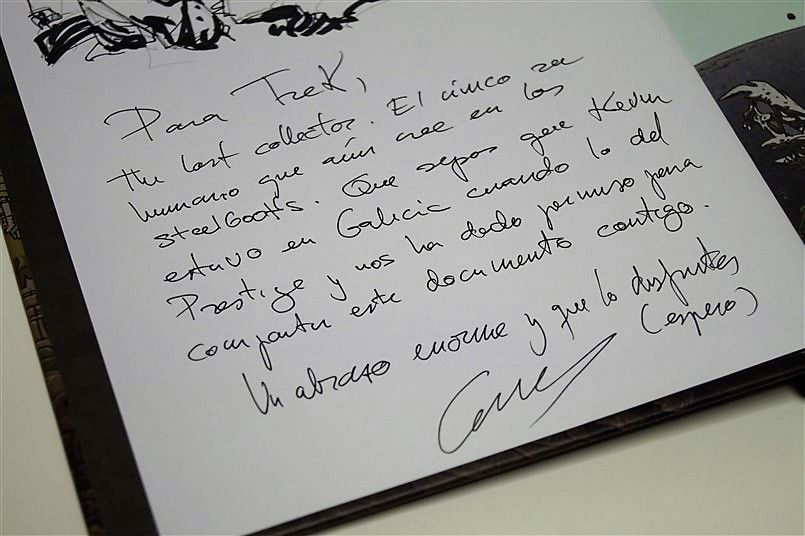 Para Trek,
the last collector. El único ser
humano que aún cree en los
steelbooks. Que sepas que Kevin
estuvo en Galicia cuando lo del
Prestige y nos ha dado permiso para
compartir este documento contigo.
Un abrazo enorme y que lo disfrutes
(espero)